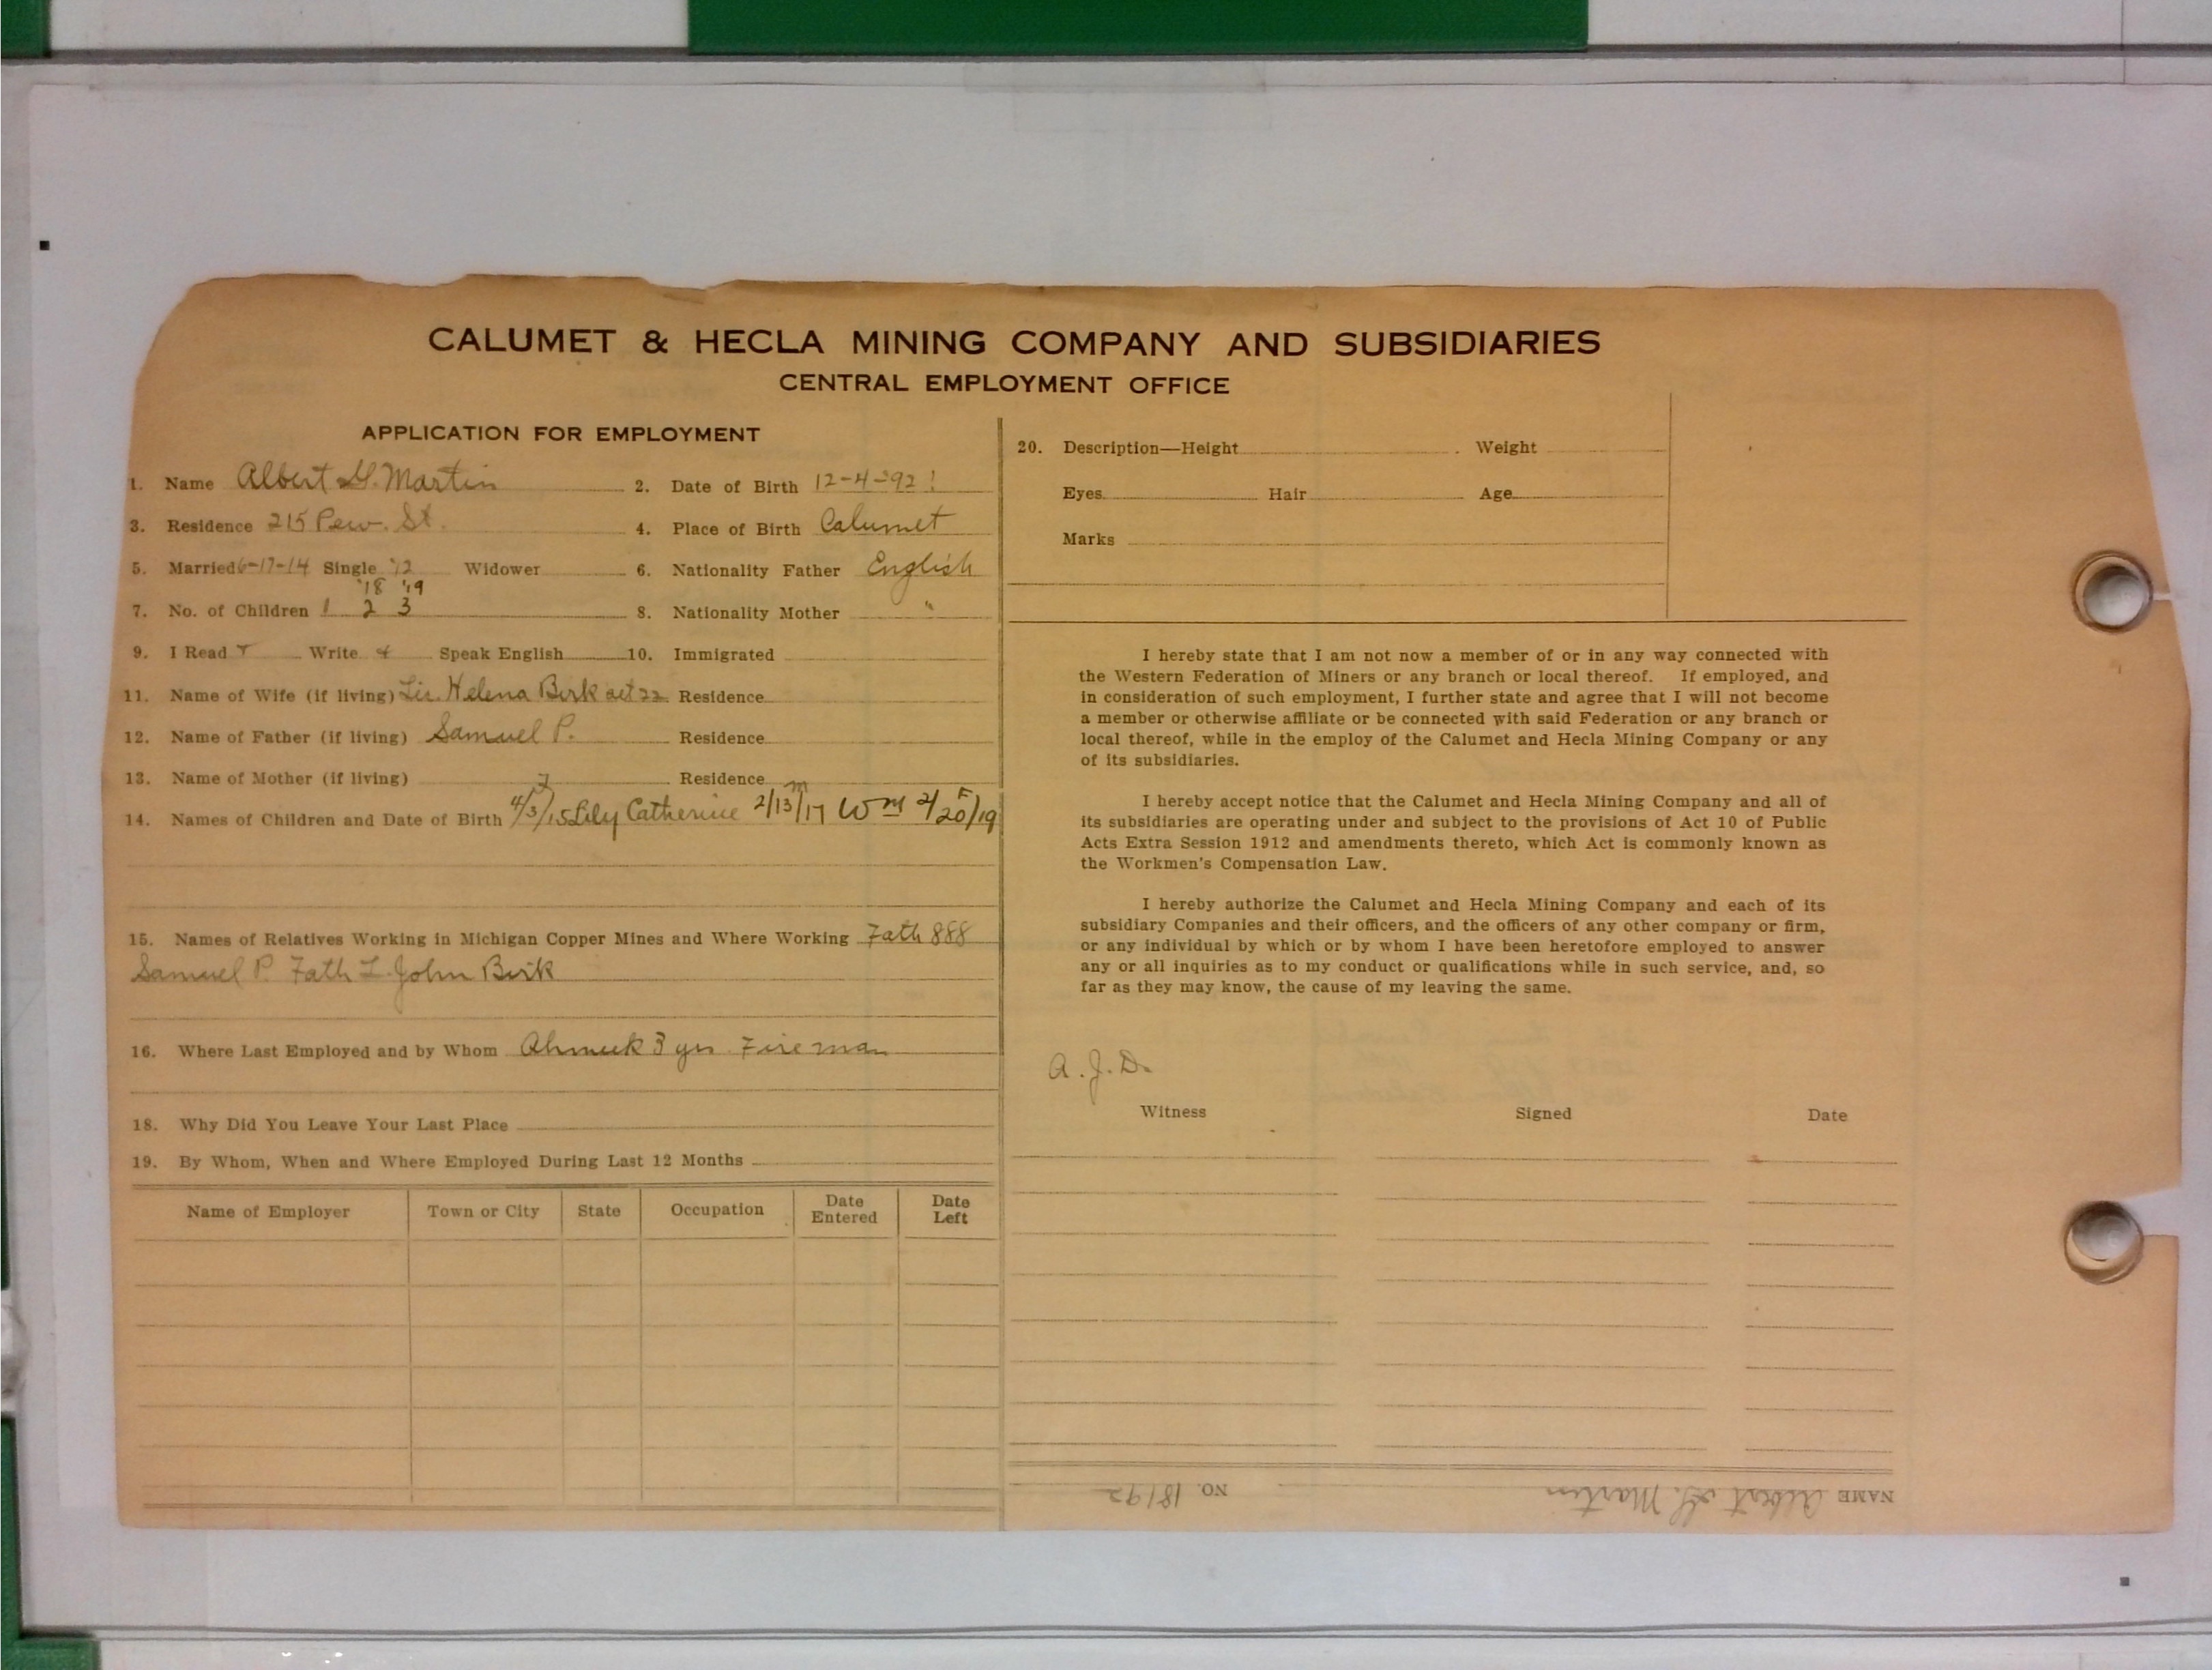 CALUMET & HECLA MINING COMPANY AND SUBSIDIARIES
CENTRAL EMPLOYMENT OFFICE
APPLICATION FOR EMPLOYMENT
1. Name Albert G. Martin 2. Date of Birth 12-4-92
3. Residence 215 Pew. St. 4. Place of Birth Calumet
5. Married 6-17-14 Single '12 Widower 6. Nationality Father English
'18 '19
7. No. of Children 1 2 3 8. Nationality Mother "
9. I Read Write Speak English 10. Immigrated
11. Name of Wife (if living) Helena Birk aet 22 Residence
12. Name of Father (if living) Samuel P. Residence
13. Name of Mother (if living) Residence
F m F
14. Names of Children and Date of Birth 4/3/15 Lily Catherine 2/13/17 Wm 2/20/19
15. Names of Relatives Working in Michigan Copper Mines and Where Working Fath 888
Samuel P. Fath L. John Birk
16. Where Last Employed and by Whom Ahmeek 3 yrs Fireman
18. Why Did You Leave Your Last Place
19. By Whom, When and Where Employed During Last 12 Months
Name of Employer Town or City State Occupation Date Entered Date Left
20. Description—Height Weight
Eyes Hair Age
Marks
I hereby state that I am not now a member of or in any way connected with
the Western Federation of Miners or any branch or local thereof. If employed, and
in consideration of such employment, I further state and agree that I will not become
a member or otherwise affiliate or be connected with said Federation or any branch or
local thereof, while in the employ of the Calumet and Hecla Mining Company or any
of its subsidiaries.
I hereby accept notice that the Calumet and Hecla Mining Company and all of
its subsidiaries are operating under and subject to the provisions of Act 10 of Public
Acts Extra Session 1912 and amendments thereto, which Act is commonly known as
the Workmen's Compensation Law.
I hereby authorize the Calumet and Hecla Mining Company and each of its
subsidiary Companies and their officers, and the officers of any other company or firm,
or any individual by which or by whom I have been heretofore employed to answer
any or all inquiries as to my conduct or qualifications while in such service, and, so
far as they may know, the cause of my leaving the same.
A. J. D.
Witness Signed Date
NAME Albert G. Martin NO. 18192